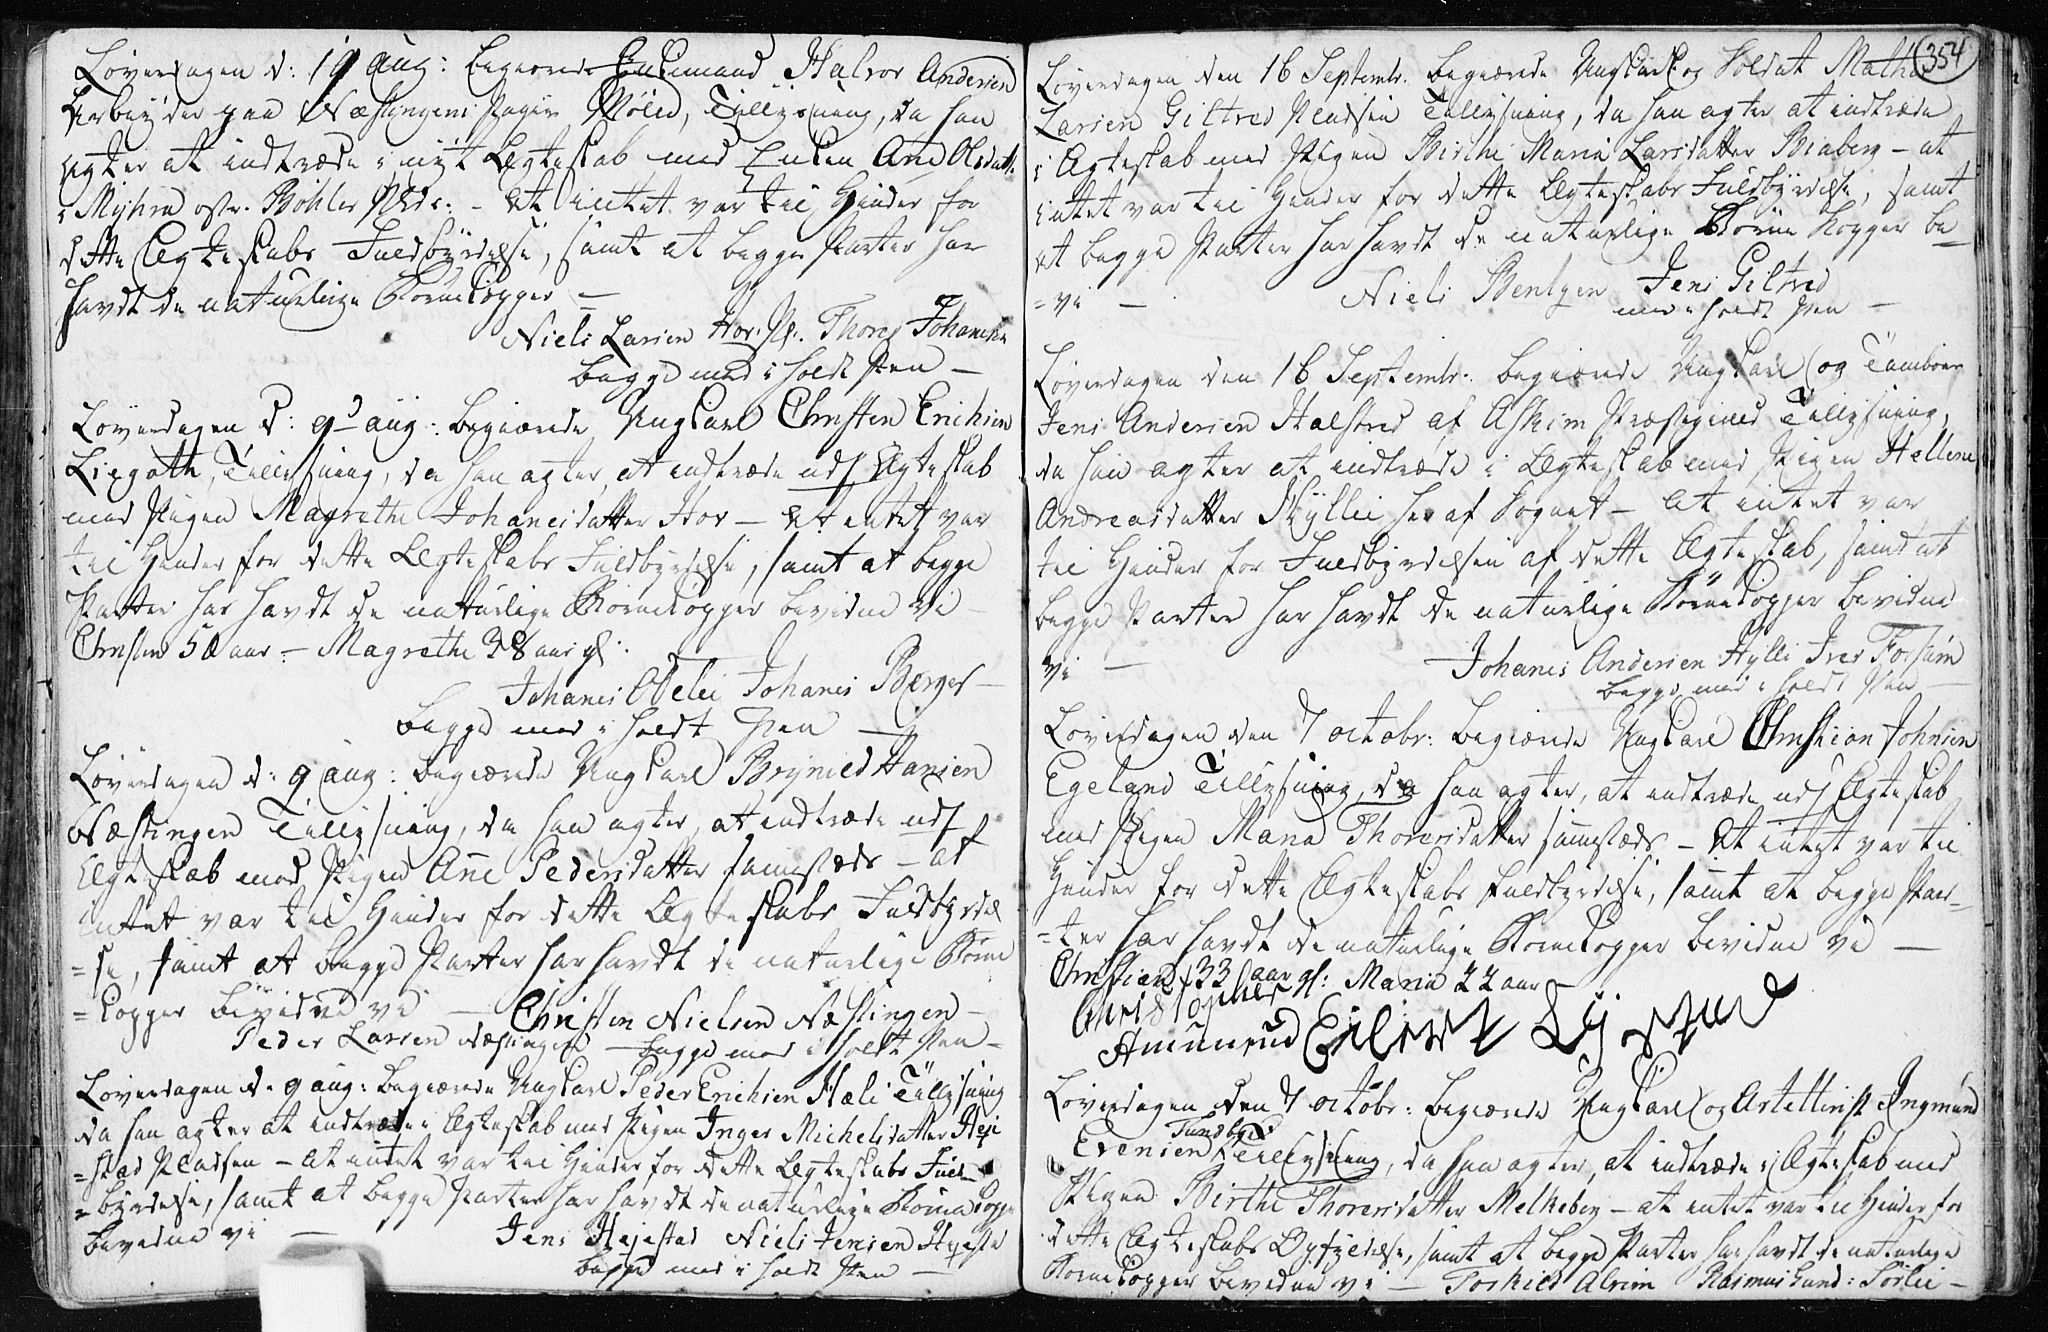 Løverdagen d: 19 aug: begierede Enkemand Halvor Andersen
Arbeyder paa Næstingens Papiir Mølle, Tillysning, da han
agter at indtræde i nyt Ægteskab med Enken Ane Olsdatt:
Myhra østr. Bøhler - at intet var til Hinder for
dette Ægteskabs Fuldbyrdelse, samt at begge Parter har
havdt de naturlige Børnekopper —
Niels Larsen Hov. Thorer Johansen
begge med i holdt Pen —
Løverdagen d: 9d aug: begierede Ungkarl Christen Erichsen
Liegoth, Tillysning, da han agter, at indtræde udj Ægteskab
med Pigen Magrethe Johanesdatter Hov — at intet var
til Hinder for dette Ægteskabs Fuldbyrdelse, samt at begge
Parter har havdt de naturlige Børnekopper bevidne vi
Christen 50 aar — Magrethe 38 aar gl.
Johanes Johanes Berger —
begge med i holdt Pen —
Løverdagen d. 9 aug: begierede Ungkarl Brynild Hansen
Næstingen Tillysning, da han agter, at indtræde udj
Ægteskab med Pigen Ane Pedersdatter sammesteds — at
intet var til Hinder for dette Ægteskabs Fuldbyrdel
=se, samt at begge Parter har havdt de naturlige Børne
=kopper bevidne vi — Christen Nielsen Næstingen —
Peder Larsen Næstingen — begge med i holdt Pen —
Løverdagen d. 9 aug: begierede Ungkarl Peder Erichsen Hæli Tillysning
da han agter at indtræde i Ægteskab med Pigen Inger Michelsdatter Heje
=stad Pladsen — at intet var til Hinder for dette Ægteskabs Fuld
=byrdelse, samt at begge Parter har havdt de naturlige Børnekopper
bevidne vi — Jens Hejestad Niels Jensen
begge med i holdt Pen —
354
Løverdagen den 16 Septembr. begierede Ungkarl og Soldat Mathis
Larsen Giltved Pladsen Tillysning, da han agter at indtræde
i Ægteskab med Pigen Birthe Maria Larsdatter — at
intet var til Hinder for dette Ægteskabs Fuldbyrdelse, samt
at begge Parter har havdt de naturlige Børne Kopper be
=vi — Niels Bentzen Jens Giltved
med i holdt Pen —
Løverdagen den 16 Septembr. begierede Ungkarl og Tambour
Jens Andersen Halstved af Askim Præstegield Tillysning,
da han agter at indtræde i Ægteskab med Pigen Hellene
Andreasdatter Hyllie her af Sognet — at intet var
til Hinder for Fuldbyrdelsen af dette Ægteskab, samt at
begge Parter har havdt de naturlige Børnekopper bevidne
vi — Johanes Andersen Hylli Iver Forsum
begge med i holdt Pen —
Løverdagen den 7 octobr: begierede Ungkarl Christian Johnsen
Egeland Tillysning, da han agter, at indtræde udj Ægteskab
med Pigen Maria Thoresdatter sammesteds — at intet var til
Hinder for dette Ægteskabs Fuldbyrdelse, samt at begge Par=
=ter har havdt de naturlige Børnekopper bevidne vi —
Christian 33 aar gl: Maria 22 aar —
Christopher
Amunrud Eilert
Løverdagen den 7 octobr: begierede Ungkarl og Artellerist Ingmund
Evensen Tundbye Tillysning, da han agter, at indtræde i Ægteskab med
Pigen Birthe Thoresdatter Melheberg — at intet var til Hinder for
dette Ægteskabs Opfyldelse, samt at begge Parter har havdt de naturlige
Børnekopper bevidne vi — Torkild Alvim Rasmus Gund: Sørlie —